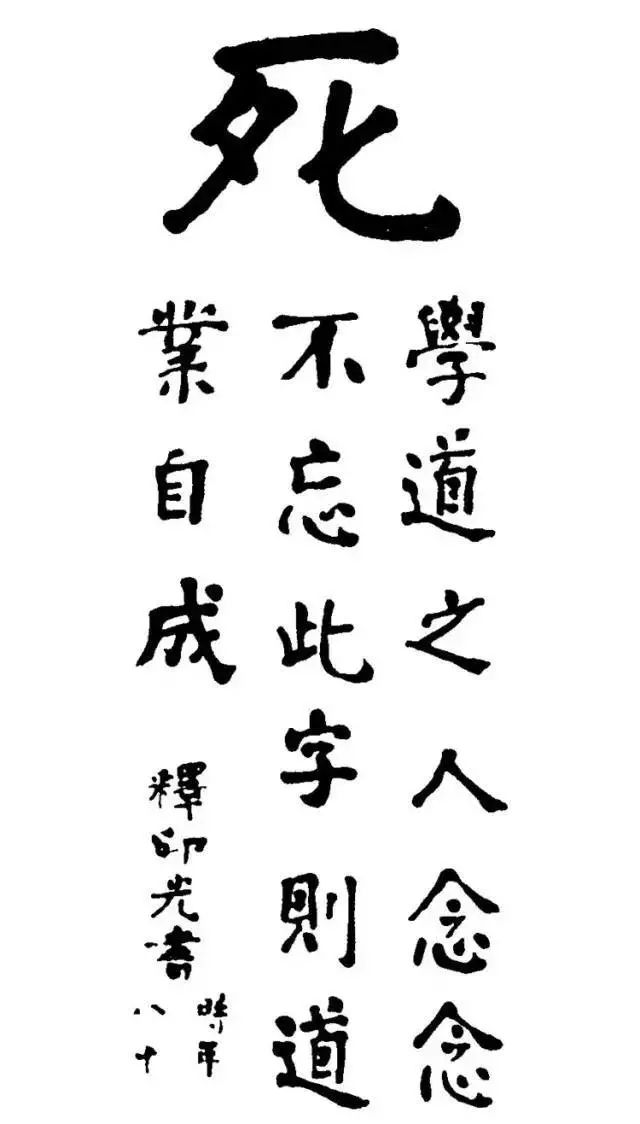 死
學道之人念念
不忘此字則道
業自成
釋印光書
時年
八十